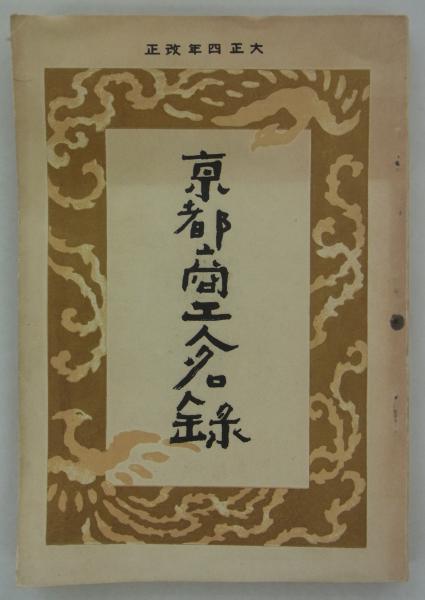 大正四年改正
亰都商工人名錄